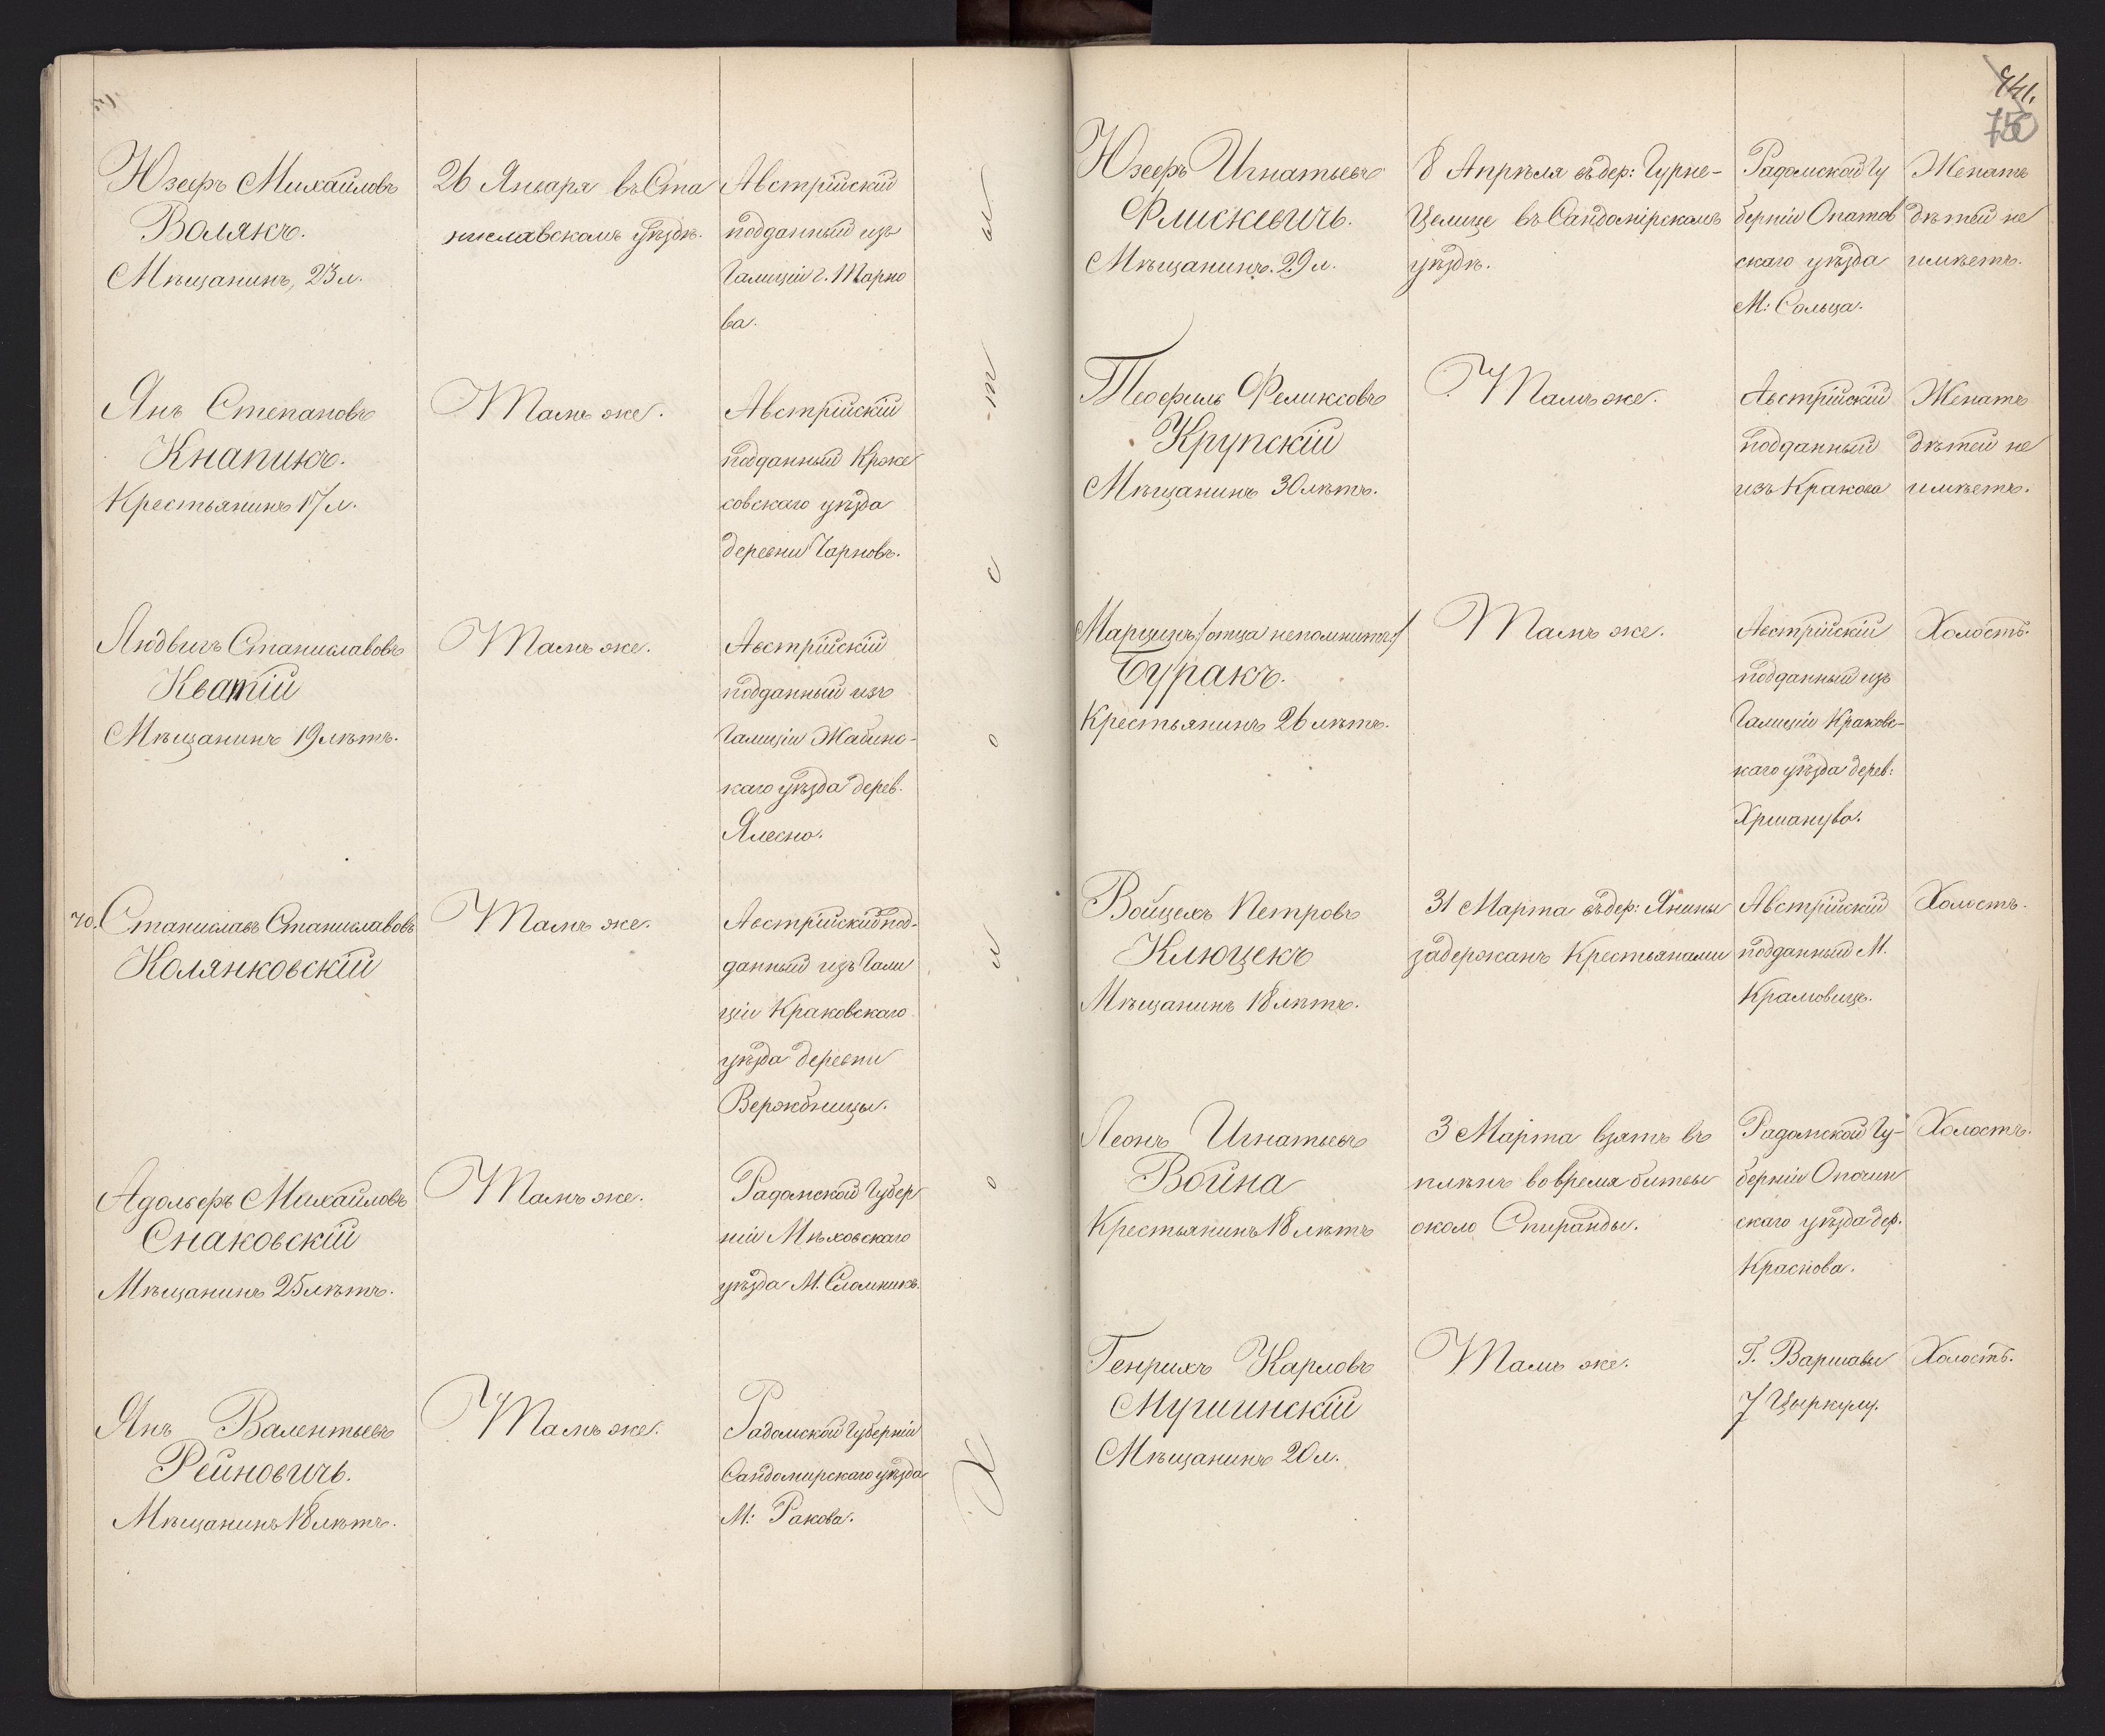 Юзефъ Михайловъ
Волякъ.
Мѣщанинъ, 23 л.
26 Января въ Ста
ниславскомъ уѣздѣ.
Австрійскій
подданный изъ
Галиціи г. Тарно
ва.
Янъ Степановъ
Кнапикъ.
Крестьянинъ 17 л.
Тамъ же.
Австрійскій
подданный Кроже
совскаго уѣзда
деревни Чарновъ.
Людвигъ Станиславовъ
Кватій
Мѣщанинъ 19 лѣтъ.
Тамъ же.
Австрійскій
подданный изъ
Галиціи Жабинс-
каго уѣзда дерев.
Ялесно.
70. Станиславъ Станиславовъ
Колянковскій
Тамъ же.
Австрійскій под-
данный изъ Гали
ціи Краковскаго
уѣзда деревни
Вержбницы.
Адольфъ Михайловъ
Снаковскій
Мѣщанинъ 25 лѣтъ.
Тамъ же.
Радомской Губер
ніи Мѣховскаго
уѣзда М. Сломникъ.
Янъ Валентьевъ
Рейновичъ.
Мѣщанинъ 18 лѣтъ.
Тамъ же.
Радомской Губерніи
Сандомирскаго уѣзда
М: Ракова.
Х о л о с т ы
441.
750
Юзефъ Игнатьевъ
Флискевичъ.
Мѣщанинъ. 29 л.
8 Апрѣля въ дер: Гурне-
Целице въ Сандомірскомъ
уѣздѣ.
Радомской Гу
берніи Опатов
скаго уѣзда
М: Сольца.
Женатъ
дѣтей не
имѣетъ.
Теофиль Феликсовъ
Крупскій
Мѣщанинъ 30 лѣтъ.
Тамъ же.
Австрійскій
подданный
изъ Кракова
Женатъ
дѣтей не
имѣетъ.
Марцинъ /отца непомнитъ/
Буракъ.
Крестьянинъ 26 лѣтъ.
Тамъ же.
Австрійскій
подданный изъ
Галиціи Краковс-
каго уѣзда дерев:
Хршанува.
Холостъ.
Войцехъ Петровъ
Клюцекъ
Мѣщанинъ 18 лѣтъ.
31 Марта въ дер: Янины
задержанъ Крестьянами
Австрійскій
подданный М.
Крамовицъ.
Холостъ.
Леонъ Игнатьевъ
Война
Крестьянинъ 18 лѣтъ
3 Марта взятъ въ
плѣнъ во время битвы
около Спиранды.
Радомской Гу-
берніи Опочин
скаго уѣзда дер.
Краснова.
Холостъ.
Генрихъ Карловъ
Мушинскій
Мѣщанинъ 20 л.
Тамъ же.
Г. Варшавы
7 Циркулу.
Холостъ.